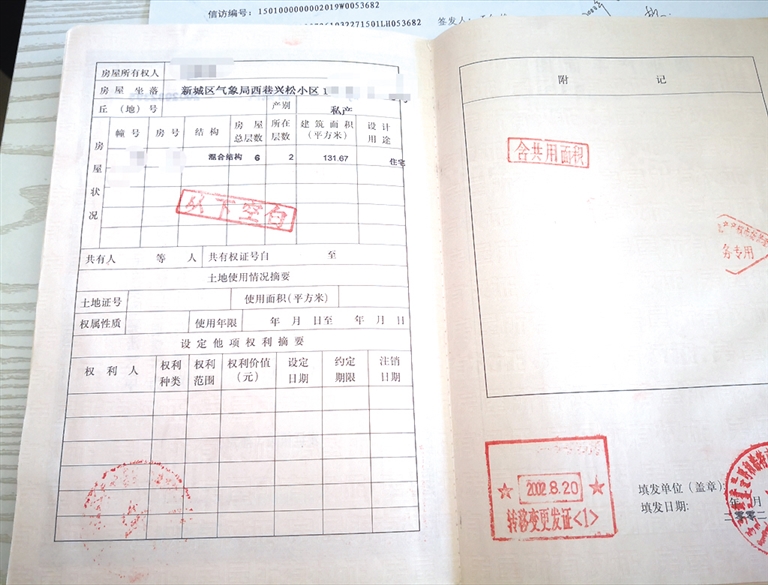 信访编号: 1501000000002019W0053682
签发人:
房屋所有权人
房屋坐落 新城区气象局西巷兴松小区1
丘(地)号 产别 私产
房屋状况
幢号 房号 结构 房屋总层数 所在层数 建筑面积(平方米) 设计用途
混合结构 6 2 131.67 住宅
以下空白
共有人 等 人 共有权证号自 至
土地使用情况摘要
土地证号 使用面积(平方米)
权属性质 使用年限 年 月 日至 年 月 日
设定他项权利摘要
权利人 权利种类 权利范围 权利价值(元) 设定日期 约定期限 注销日期
附 记
含共用面积
务专用
2002.8.20
转移变更发证<1>
填发单位(盖章):
填发日期: 二零零二 年 月